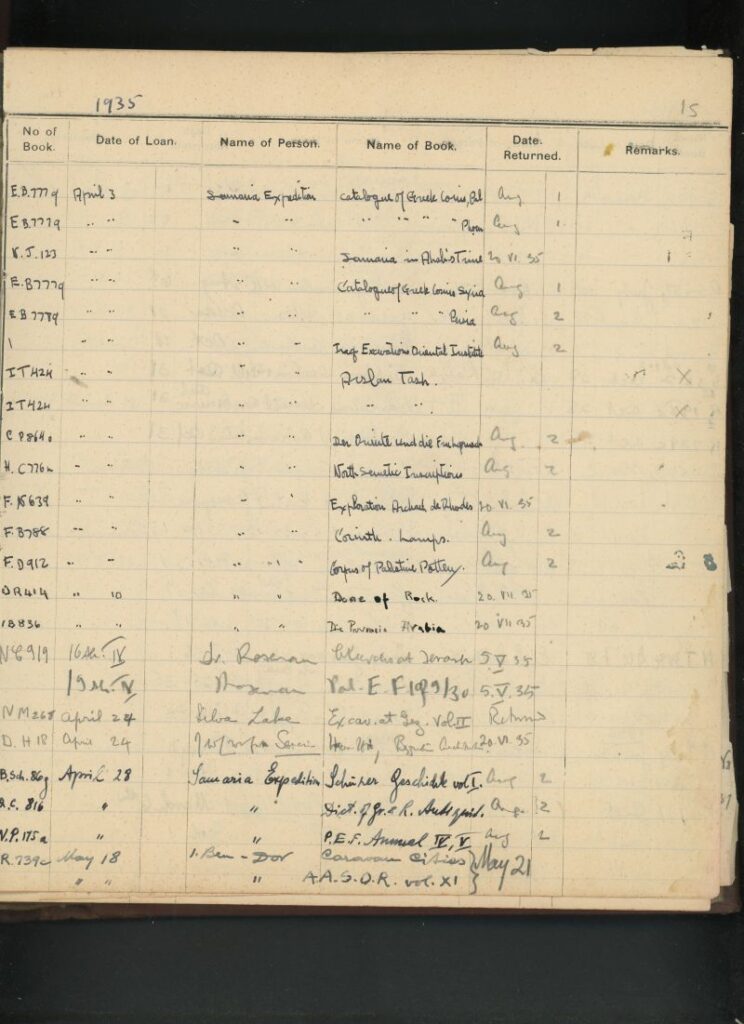 1935 15
No of Book. Date of Loan. Name of Person. Name of Book. Date. Returned. Remarks.
E.B.777g April 3 Samaria Expedition Catalogue of Greek Coins, Pal Aug 1
E B 777g " " " " " " " Aug 1
V. J. 123 " " " " Samaria in 20 VI 35
E. B 777g " " " " Catalogue of Greek Coins Syria Aug 1
E B 778g " " " " " " " Persia Aug 2
1 " " " " Iraq Excavations Oriental Institute Aug 2
I T 424 " " " " Arslan Tash. X
I T 424 " " " " " " X
C P 864 " " " " Der Oriente und die Aug 2
H. C 776 " " " " North Semetic Inscriptions Aug 2
F. N 639 " " " " Exploration Archaeol. de Rhodes 20 VI 35
F. B 788 " " " " Corinth. Lamps. Aug 2
F. D 912 " " " " Corpus of Palestine Pottery. Aug 2
D R 414 " 10 " " Dome of Rock. 20. VII. 35
1 B 836 " " Die Provincia Arabia 20 VII 35
N E 919 16th. IV Dr. Rosenau Churches at Jerash 5. V 35
19th. IV Rosenau Pal. E. F 1929/30 5. V. 35
N M 268 April 24 Silva Lake Excav. at Vol II Returned
D. H 18 April 24 20. VI. 35
B.Sch. 86g April 28 Samaria Expedition Schürer Geschichte vol I. Aug 2
R.C. 816 " " Dict. of Gr. & R. Antiquit. Aug. 2
V.P. 175a " P.E.F. Annual IV, V Aug 2
R. 739c May 18 I. Ben-Dor Caravan Cities } May 21
" " " A.A.S.O.R. vol. XI